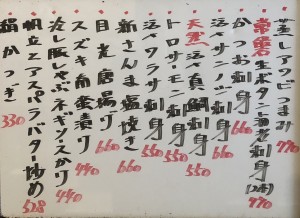 蒸しアワビつまみ 770
常磐生ボタン海老刺身(2本) 770
かつお刺身 660
活〆サンノジ刺身
天然活〆真鯛刺身 550
トロサーモン刺身 550
活〆ワラサ刺身 550
新さんま塩焼き 660
目光唐揚げ 660
スズキ西京漬け 440
冷し豚しゃぶネギソースがけ 440
帆立とアスパラバター炒め 528
絹かつぎ 330